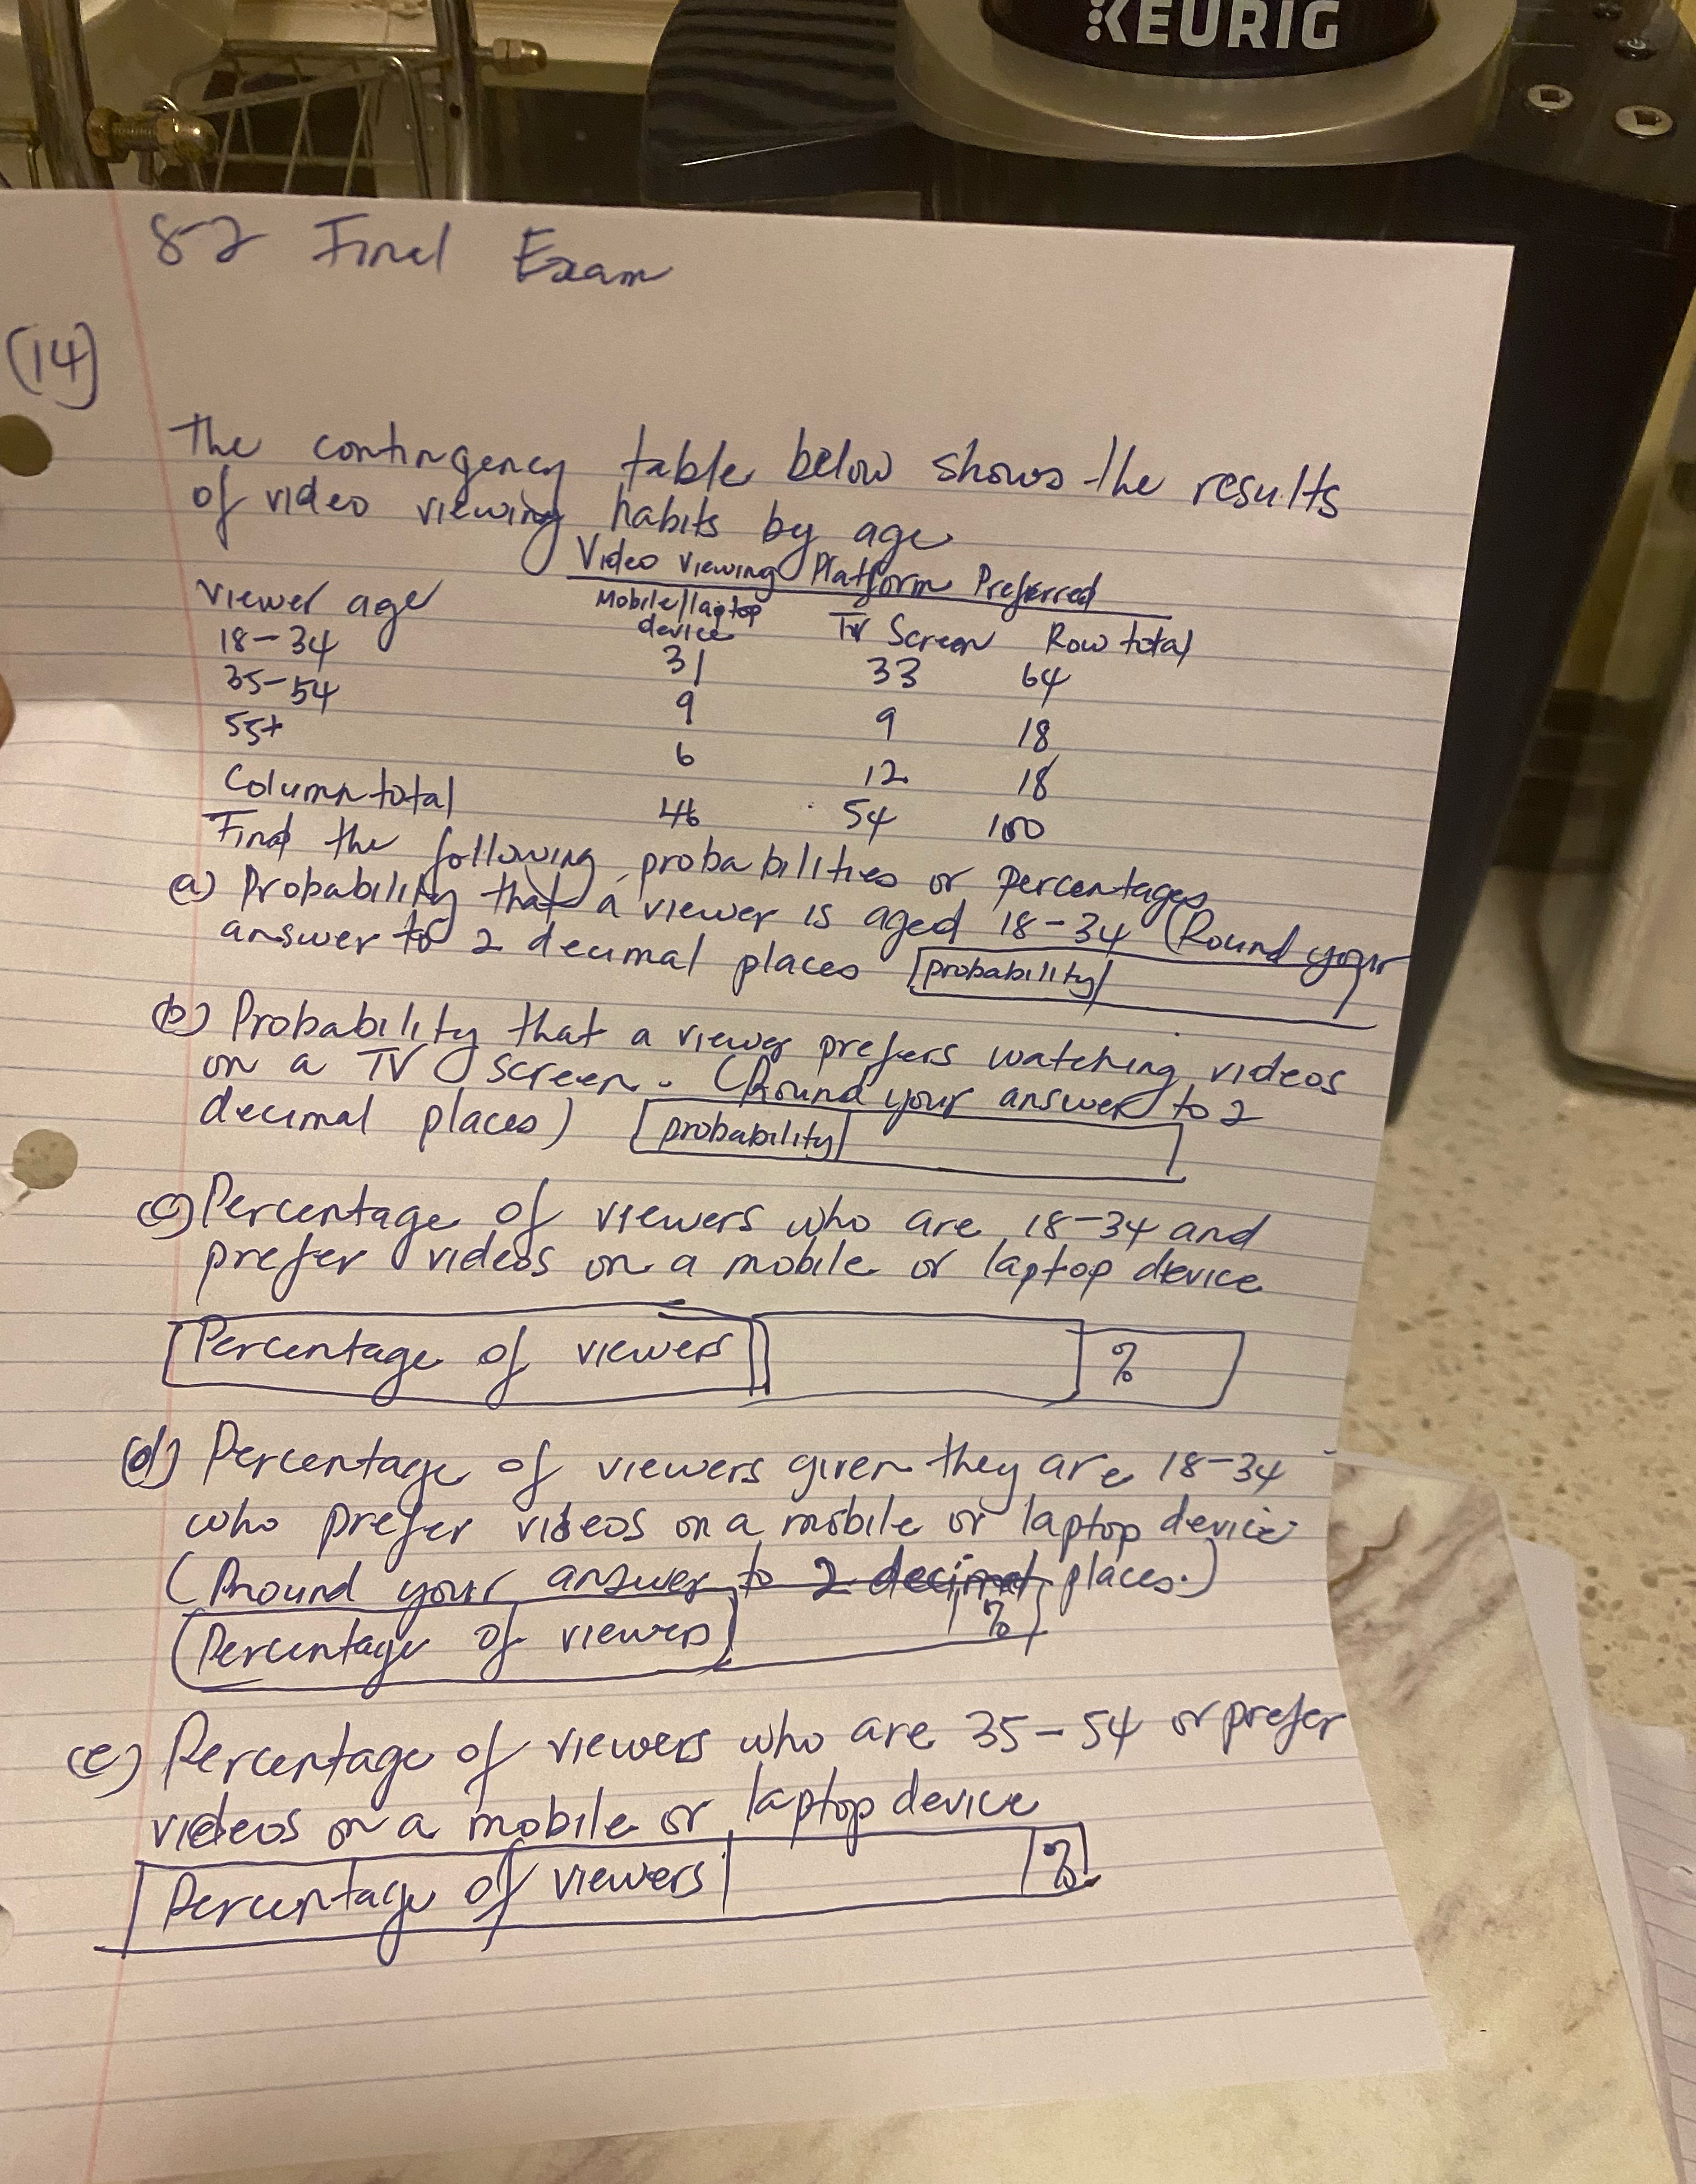 KEURIG
8-2 Final Exam
(14)
The contingency table below shows the results
of video viewing habits by age
Video Viewing Platform Preferred
Viewer age Mobile/laptop device TV Screen Row total
18-34 31 33 64
35-54 9 9 18
55+ 6 12 18
Column total 46 54 100
Find the following probabilities or percentages
a) Probability that a viewer is aged 18-34 (Round your
answer to 2 decimal places probability
(b) Probability that a viewer prefers watching videos
on a TV screen. (Round your answer to 2
decimal places) probability
(c) Percentage of viewers who are 18-34 and
prefer videos on a mobile or laptop device
Percentage of viewers %
(d) Percentage of viewers given they are 18-34
who prefer videos on a mobile or laptop device
(Round your answer to 2 decimal places.)
Percentage of viewers %
(e) Percentage of viewers who are 35-54 or prefer
videos on a mobile or laptop device
Percentage of viewers %